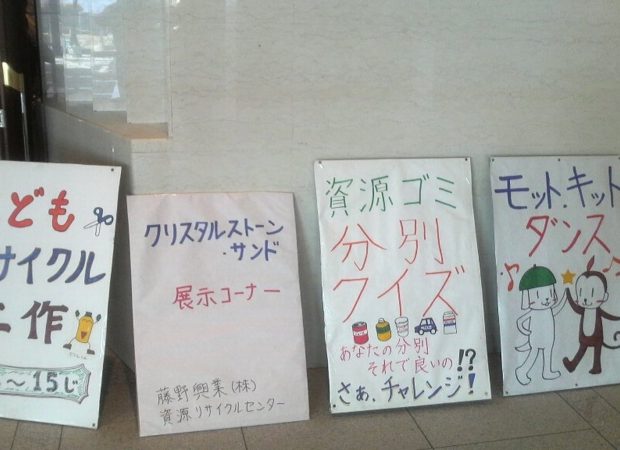 ども
サイクル
工作
～15じ
クリスタルストーン
・サンド
展示コーナー
藤野興業(株)
資源リサイクルセンター
資源ゴミ
分別
クイズ
あなたの分別
それで良いの!?
さぁ、チャレンジ!
モット.キット
ダンス